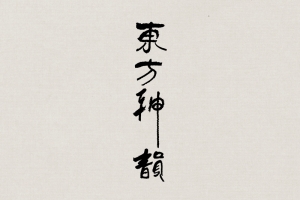 東方神韻